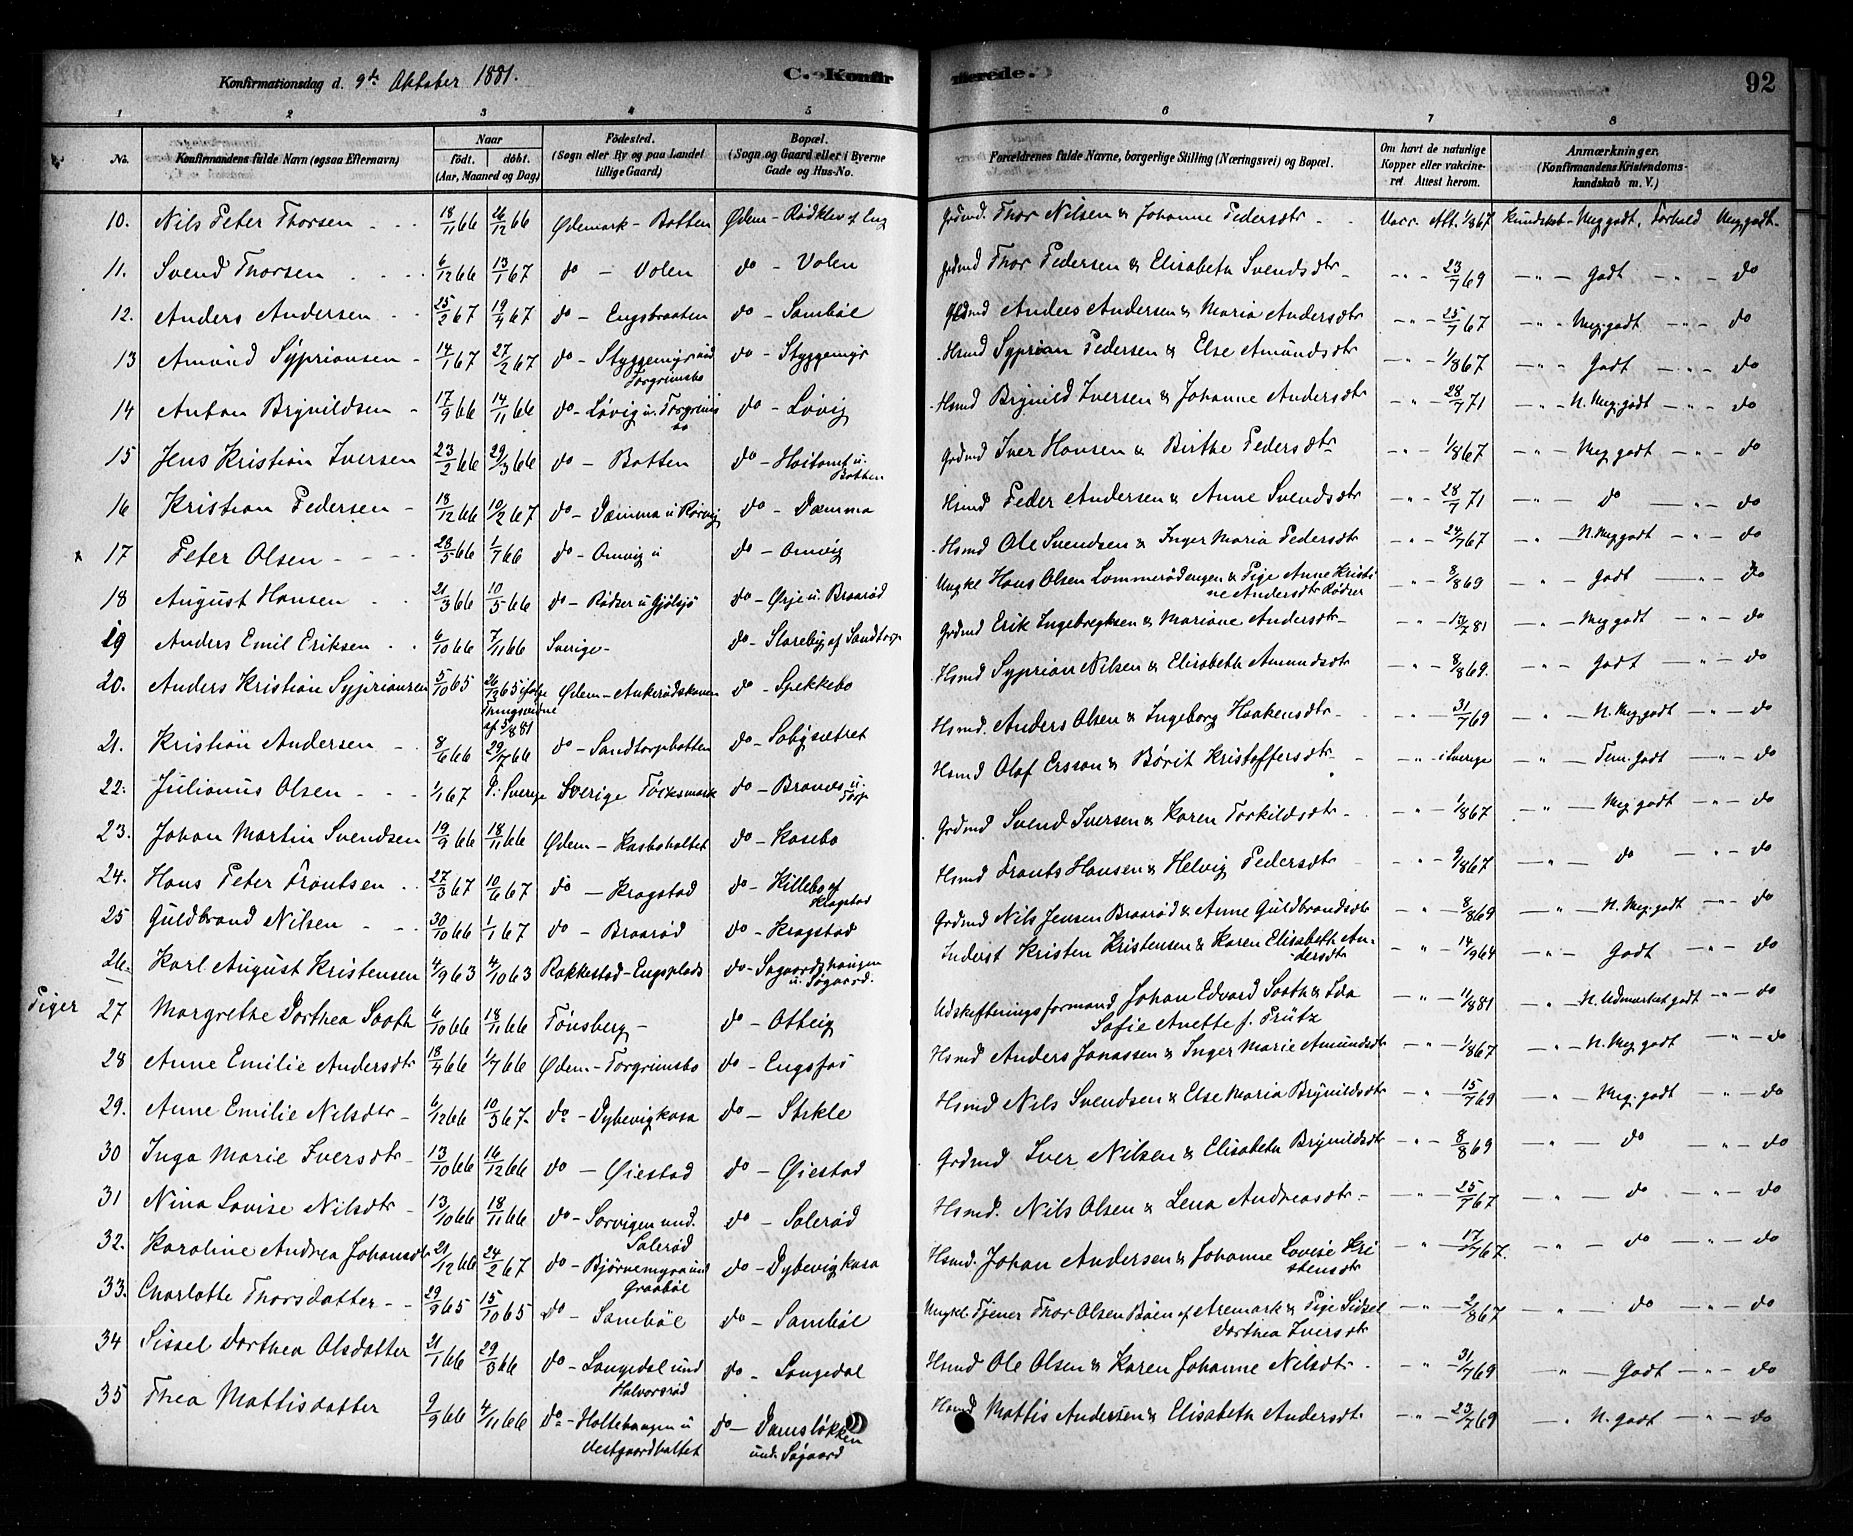 Konfirmationsdag d. 9de Oktober 1881.
C. Konfirmerede.
92
1 2 3 4 5 6 7 8
No.
Konfirmandens fulde Navn (ogsaa Efternavn)
Naar født. døbt. (Aar, Maaned og Dag)
Fødested. (Sogn eller By og paa Landet tillige Gaard)
Bopæl. (Sogn og Gaard eller i Byerne Gade og Hus-No.
Forældrenes fulde Navne, borgerlige Stilling (Næringsvei) og Bopæl.
Om havt de naturlige Kopper eller vakcineret Attest herom.
Anmærkninger. (Konfirmandens Kristendomskundskab m. V.)
10. Nils Peter Thorsen 18/11 66 26/12 66 Ødemark - Botten Ødem - Rødklev af Eng Grdmd. Thor Nilsen & Johanne Pedersdtr Vacc. Att. 1/8 67 Kundskab - Meg. godt, Forhold Meg. godt.
11. Svend Thorsen 6/12 66 13/1 67 do - Volen do - Volen Grdmd Thor Pedersen & Elisabeth Svendsdtr 23/7 69 Godt do
12. Anders Andersen 25/2 67 19/4 67 do - Engsbraaten do - Sambøl Grdmd Anders Andersen & Maria Andersdtr 25/7 67 Meg. godt do
13 Amund Sypriansen 14/1 67 27/2 67 do - Styggemyr und Torgrimsbo do - Styggemyr Hsmd Syprian Pedersen & Else Amundsdtr 1/8 67 Godt do
14 Anton Brynildsen 17/9 66 14/11 66 do - Løvig u. Torgrimsbo do - Løvig Hsmd Brynild Iversen & Johanne Andersdtr 28/7 71 N. Meg. godt do
15 Jens Kristian Iversen 23/2 66 29/3 66 do - Botten do - Høitomt u. Botten Grdmd Iver Hansen & Birthe Pedersdtr 1/8 67 Meg. godt do
16 Kristian Pedersen 18/12 66 10/2 67 do - Dæmma u Rørvig do - Dæmma Hsmd Peder Andersen & Anne Svendsdtr 28/7 71 do do
x 17 Peter Olsen 28/5 66 1/7 66 do - Omvig u do - Omvig Hsmd Ole Svendsen & Inger Maria Pedersdtr 24/7 67 N. Meg godt do
18 August Hansen 21/3 66 10/5 66 do - Rødser u Gjølsjø do - Ørje u. Braarød Ungkl Hans Olsen Lommerødengen & Pige Anne Kristine Andersdtr Rødser 8/8 69 godt do
19 Anders Emil Eriksen 6/10 66 7/11 66 Sverige - do - Sloreby af Sandtorp Grdmd Erik Ingebregtsen & Mariane Andersdtr 13/7 81 Meg godt do
20. Anders Kristian Sypriansen 5/10 65 26/12 65 ifølge Thingsvidne af 5/8 81 Ødem - Ankerødskaven do - Spekkebo Hsmd Syprian Nilsen & Elisabeth Amundsdtr 8/8 69. Godt do
21. Kristian Andersen 8/6 66 29/7 66 do - Sandtorpbotten do - Sobysætret Hsmd. Anders Olsen & Ingeborg Haakensdtr 31/7 69 N. Meg. godt do
22. Julianus Olsen 1/1 67 i Sverige Sverige Töcksmark do - Brandes u. Torp Hsmd Olof Ersson & Børit Kristoffersdtr i Sverige Tem. Godt do
23. Johan Martin Svendsen 19/9 66 18/11 66 Ødem - Kasboholtet do - Kasebo Grdmd Svend Iversen & Karen Torkildsdtr 1/8 67 Meg godt do
24. Hans Peter Frantsen 27/3 67 10/6 67 do - Kragstad do - Killebo af Kragstad Hsmd Frants Hansen & Helvig Pedersdtr 9/8 67 do do
25 Guldbrand Nilsen 30/10 66 1/1 67 do - Braarød do - Kragstad Grdmd Nils Jensen Braarød & Anne Guldbrandsdtr 8/8 69 N. Meg. godt do
26. Karl August Kristensen 4/9 63 4/10 63 Rakkestad - Engsplads do - Søgaardshaugen u. Søgaard. Inderst Kristen Kristensen & Karen Elisabeth Andersdtr 14/9 64 Godt do
Piger 27 Margrethe Dorthea Sooth 6/10 66 18/11 66 Tønsberg - do - Otteig Udskiftningsformand Johan Edvard Sooth & Ida Sofie Anette f. Prütz 1/8 81 N. Udmærket godt do
28 Anne Emilie Andersdtr 18/4 66 1/7 66 Ødem - Torgrimsbo do - Engsfos Hsmd Anders Jonassen & Inger Marie Amundsdtr 1/8 67 N. Meg godt do
29. Anne Emilie Nilsdtr 6/12 66 10/3 67. do - Dybevigkasa do - Stikle Hsmd Nils Svendsen & Else Maria Brynildsdtr 15/7 69 Meg. godt do
30 Inga Marie Iversdtr 13/10 66 16/12 66 do - Øiestad do - Øiestad Grdmd Iver Nilsen & Elisabeth Brynildsdtr 8/8 69 do do
31 Nina Lovise Nilsdtr 13/10 66 18/11 66 do - Sorvigen und. Solerød do - Solerød Hsmd. Nils Olsen & Lena Andreasdtr 25/7 67 do do
32. Karoline Andrea Johansdtr 21/12 66 24/2 67 do - Bjørnemyra und Graabøl do - Dybevigkasa Hsmd. Johan Andersen & Johanne Lovise Kristensdtr 17/7 67. do do
33. Charlotte Thorsdatter 29/9 65 15/10 65 do - Sambøl do - Sambøl Ungkl. Tjener Thor Olsen Bøen af Aremark & Pige Sidsel Dorthea Iversdtr 2/8 67 do do
34 Sissel Dorthea Olsdatter 21/1 66 29/3 66 do - Langedal und Halvorsrød do - Langedal Hsmd Ole Olsen & Karen Johanne Nilsdtr 31/7 69 Godt do
35 Thea Mattisdatter 9/9 66 4/11 66 do - Holtehaugen u Vestgaardholtet do - Damsløkken und. Søgaard Hsmd Mattis Andersen & Elisabeth Andersdtr 23/7 69 N. godt do